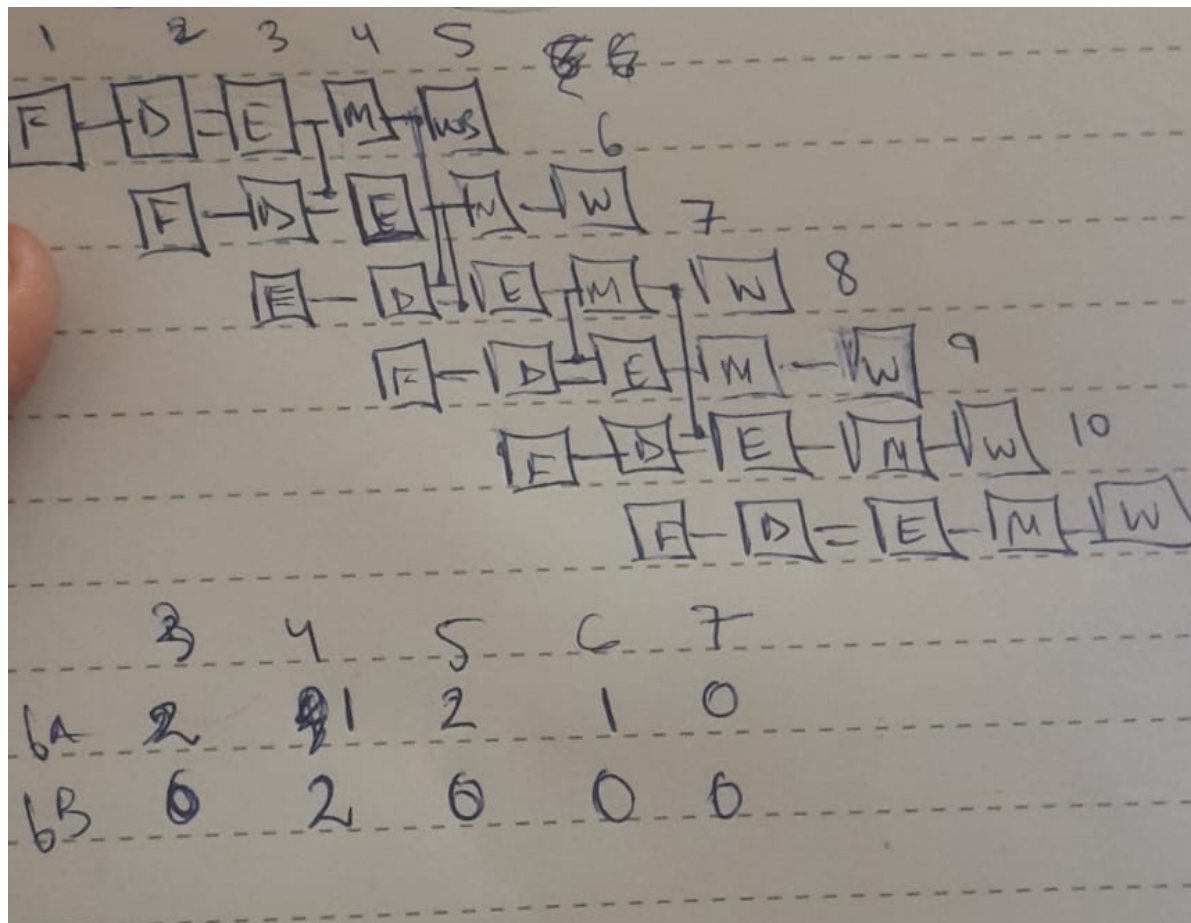 1 2 3 4 5
F D E M WB 6
F D E M W 7
F D E M W 8
F D E M W 9
F D E M W 10
F D E M W
3 4 5 6 7
6A 2 1 2 1 0
6B 0 2 0 0 0